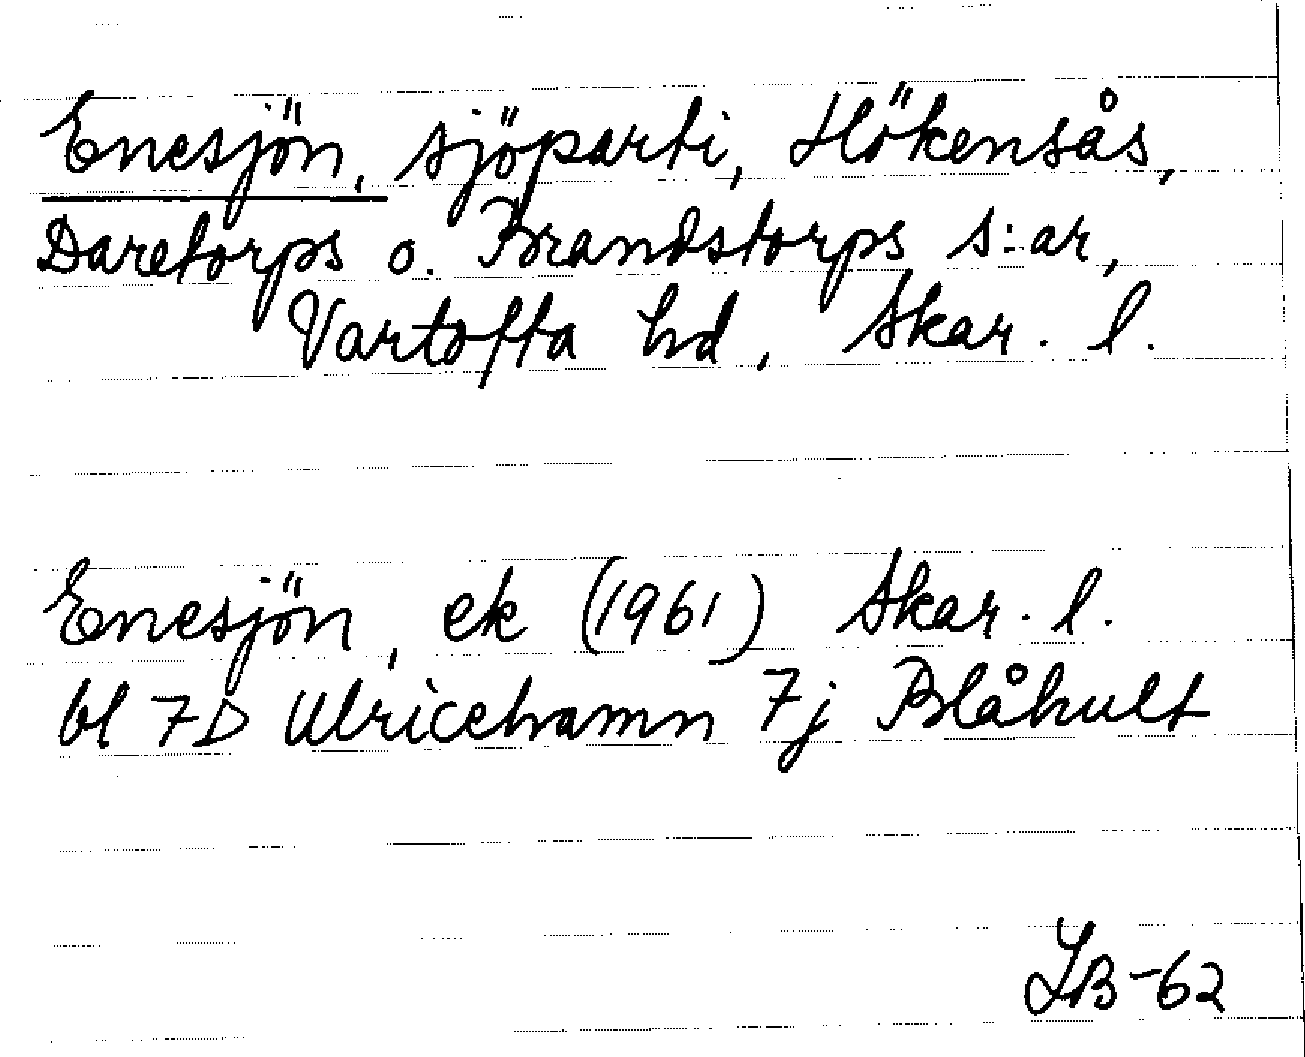 Enesjön, sjöparti, Hökensås,
Daretorps o. Brandstorps s:ar,
Vartofta hd, Skar. l.
Enesjön, ek (1961) Skar. l.
bl 7D Ulricehamn 7j Blåhult
LB-62